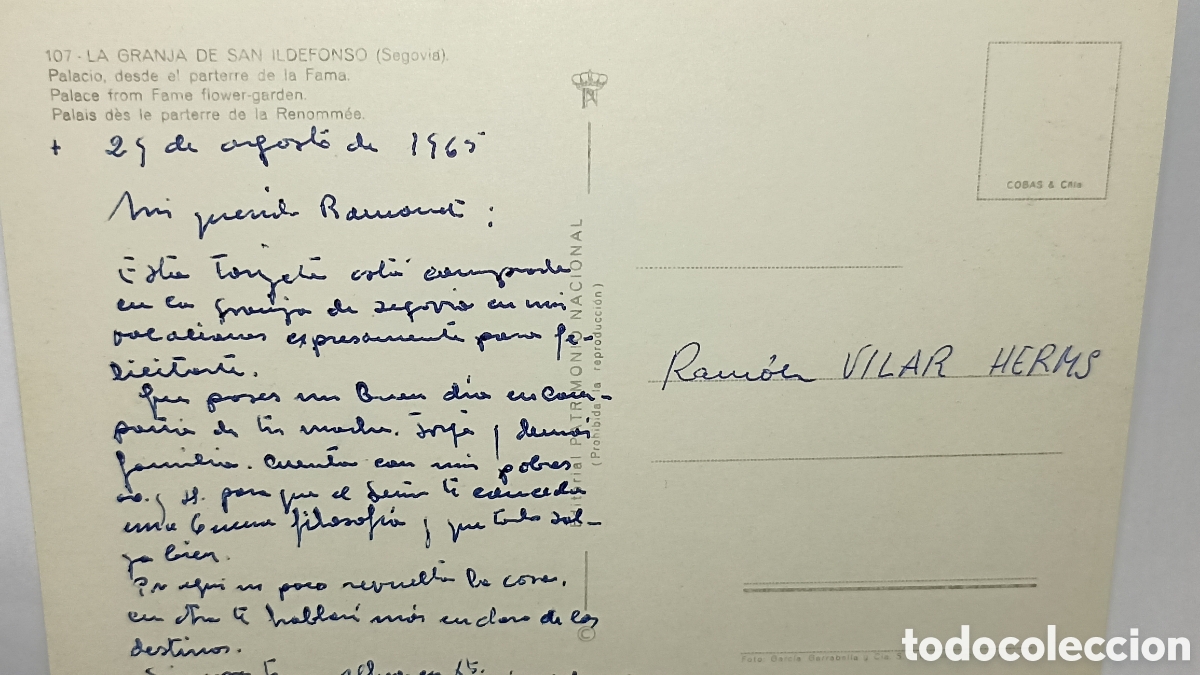 107 - LA GRANJA DE SAN ILDEFONSO (Segovia).
Palacio, desde el parterre de la Fama.
Palace from Fame flower-garden.
Palais dès le parterre de la Renommée.
+ 29 de agosto de 1965
Mi querido Ramonet:
Esta tarjeta está comprada
en La Granja de Segovia en mis
vacaciones expresamente para fe-
licitarte.
Que pases un buen día en com-
pañía de tu madre. Jorge y demás
familia. Cuenta con mis pobres
y para que el Señor te conceda
una buena filosofía y que todo sal-
ga bien.
Por aquí un poco revuelta la cosa,
en otra te hablaré más en claro de los
destinos.
Editorial PATRIMONIO NACIONAL
(Prohibida la reproducción)
©
COBAS & Cñia
Ramón VILAR HERMS
Foto: García Garrabella y Cía.
todocoleccion.net